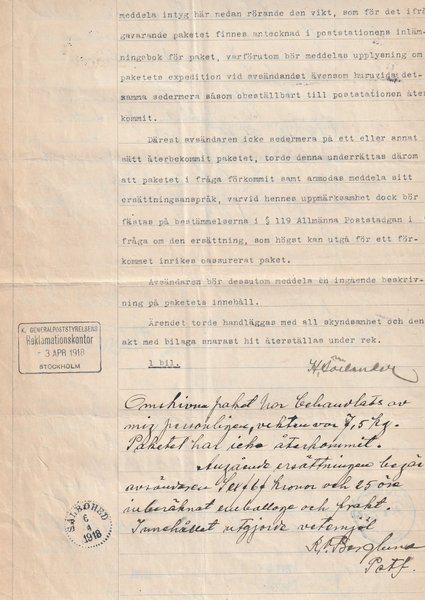 meddela intyg här nedan rörande den vikt, som för det ifrå
gavarande paketet finnes antecknad i poststationens inläm-
ningsbok för paket, varförutom bör meddelas upplysning om
paketets expedition vid avsändandet ävensom huruvida det-
samma sedermera såsom obeställbart till poststationen åter
kommit.
Därest avsändaren icke sedermera på ett eller annat
sätt återbekommit paketet, torde denna underrättas därom
att paketet i fråga förkommit samt anmodas meddela sitt
ersättningsanspråk, varvid hennes uppmärksamhet dock bör
fästas på bestämmelserna i § 119 Allmänna Poststadgan i
fråga om den ersättning, som högst kan utgå för ett för-
kommet inrikes oassurerat paket.
Avsändaren bör dessutom meddela en ingående beskriv-
ning på paketets innehåll.
Ärendet torde handläggas med all skyndsamhet och den
akt med bilaga snarast hit återställas under rek.
1 bil.
K. GENERALPOSTSTYRELSENS
Reklamationskontor
- 3 APR 1918
STOCKHOLM
Omskrivna paket har behandlats av
mig personligen, vekten var 7,5 kg.
Paketet har icke återkommit.
Angående ersättningen begär
avsändaren kronor och 25 öre
inberäknat emballage och frakt.
Innehållet utgjorde vetemjöl
R. Berglund
Postf.
6
4
1918